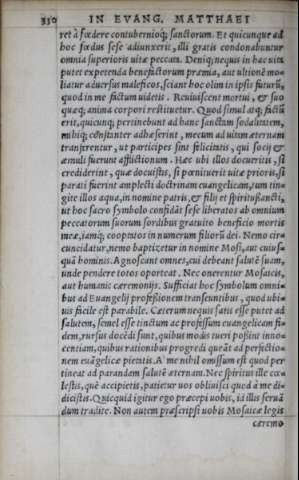 330 IN EVANG. MATTHAEI
ret à fœdere contubernioq; sanctorum. Et quicunque ad
hoc fœdus sese adiunxerit, illi gratis condonabuntur
omnia superioris uitæ peccata. Deniq; nequis in hac uita
putet expetenda benefactorum præmia, aut ultionē mo-
liatur aduersus maleficos, sciant hoc olim in ipsis futurū,
quod in me factum uidetis. Reuiuiscent mortui, & suo
quæq; anima corpori restituetur. Quod simul atq; factū
erit, quicunq; pertinebunt ad hanc sanctam sodalitatem,
mihiq; cōstanter adhæserint, mecum ad uitam æternam
transferentur, ut participes sint felicitatis, qui socij &
æmuli fuerunt afflictionum. Hæc ubi illos docueritis, si
crediderint, quæ docuistis, si pœnituerit uitæ prioris, si
parati fuerint amplecti doctrinam euangelicam, tum tin-
gite illos aqua, in nomine patris, & filij et spiritussancti,
ut hoc sacro symbolo confidāt sese liberatos ab omnium
peccatorum suorum sordibus gratuito beneficio mortis
meæ, iamq; cooptatos in numerum filiorū dei. Nemo cir-
cuncidatur, nemo baptizetur in nomine Mosi, aut cuius-
quā hominis. Agnoscant omnes, cui debeant salutē suam,
unde pendere totos oporteat. Nec onerentur Mosaicis,
aut humanis cæremonijs. Sufficiat hoc symbolum omni-
bus ad Euangelij professionem transeuntibus, quod ubi-
uis facile est parabile. Cæterum nequis satis esse putet ad
salutem, semel esse tinctum ac professum euangelicam fi-
dem, rursus docēdi sunt, quibus modis tueri possint inno-
centiam, quibus rationibus progredi queāt ad perfectio-
nem euāgelicæ pietatis. A' me nihil omissum est quod per
tineat ad parandam salutē æternam. Nec spiritus ille cœ-
lestis, quē accipietis, patietur uos obliuisci quod à me di-
dicistis. Quicquid igitur ego præcepi uobis, id illis serua
dum tradite. Non autem præscripsi uobis Mosaicæ legis
cæremo